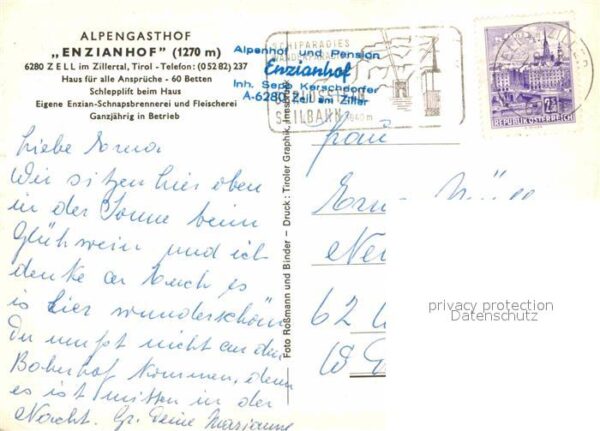 ALPENGASTHOF
„ENZIANHOF" (1270 m)
6280 ZELL im Zillertal, Tirol - Telefon: (0 52 82) 237
Haus für alle Ansprüche - 60 Betten
Schlepplift beim Haus
Eigene Enzian-Schnapsbrennerei und Fleischerei
Ganzjährig in Betrieb
Alpenhof und Pension
Enzianhof
Inh. Sepp Kerschdorfer
A-6280 Zell am Ziller
SCHIPARADIES
WANDERPARADIES
SEILBAHN
REPUBLIK ÖSTERREICH
Liebe Erna
Wir sitzen hier oben
in der Sonne beim
Glühwein und ich
denke an Euch es
is hier wunderschön
Du mußt nicht an den
Bahnhof kommen, denn
es ist mitten in der
Nacht. Gr. Deine Marianne
Foto Roßmann und Binder - Druck: Tiroler Graphik, Innsbruck
Frau
Erna Müll
62
privacy protection
Datenschutz